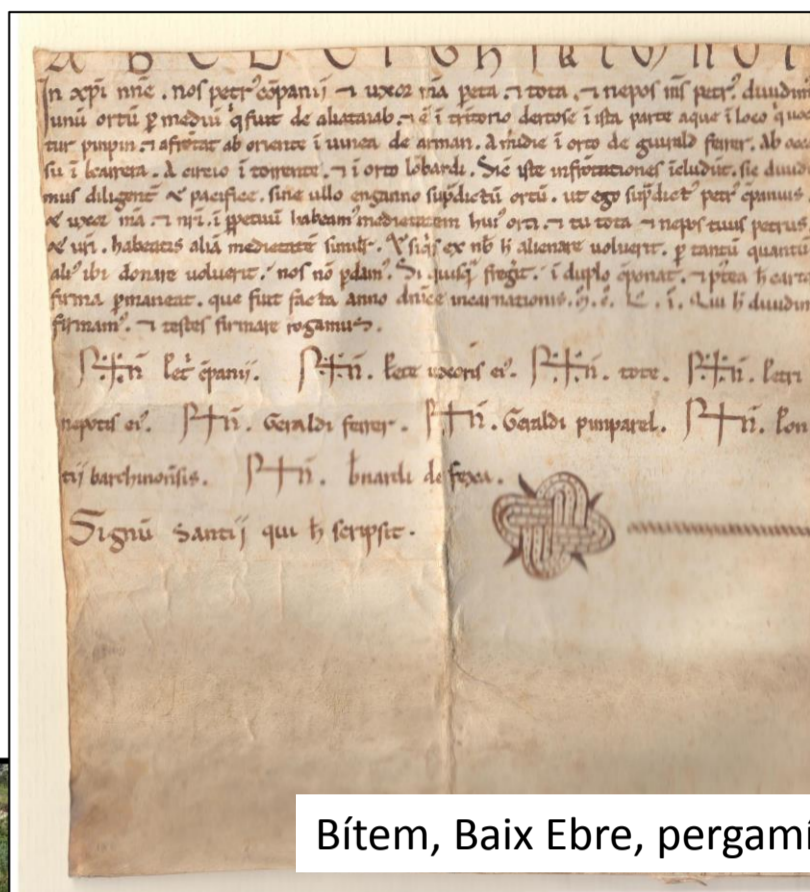 A B C D E F G H I K L M N O P
In xp̄i nn̄e . nos petr᾽ cō̄panij ⁊ uxor m̄a peta . ⁊ tota . ⁊ nepos m̄s petr᾽ . diuidim
unū ortū p̱ mediū q̓ fuit de aliataiab . ⁊ ē ī tr̄itorio dertose ī ista parte aque ī loco
tur pinpin . ⁊ afrōtat ab oriente ī uinea de arman . A m̄idie ī orto de guirald ferrer . Ab
su ī . A circio ī torrente . ⁊ ī orto lōbardi . Sic̄ iste infrōtationes īcludūt . sic diuid
mus diligent̄ ⁊ pacifice . sine ullo enganno sup̄dictū ortū . ut ego sup̄dict᾽ petr᾽ cp̄anius
⁊ uxor m̄a . ⁊ nr̄i . ī pp̄etuū habeam᾽ medietatem hui᾽ orti . ⁊ tu tota ⁊ nepos tuus petrus
⁊ ur̄i . habeatis aliā medietatē simil̄r . alienare uoluerit . p̱ tantū quantū
ali᾽ ibi donare uoluerit . nos nō pdam᾽ . Si quisq̄ freḡit . ī duplo cp̄onat . ⁊ p̄tea h̄ carta
firma p̱maneat . que fuit facta anno dn̄ice incarnationis . Qui h̄ diuidim
firmam᾽ . ⁊ testes firmare rogamus .
S†n̄ Petr̄ cp̄anij . S†n̄ . Pete uxoris ei᾽ . S†n̄ . tote . S†n̄ . Petri
nepotis ei᾽ . S†n̄ . Geraldi ferrer . S†n̄ . Geraldi pinparel . S†n̄ . Pon
tij barchinon̄sis . S†n̄ . b̄nardi de fexa .
Signū Santij qui h̄ scripsit .
Bítem, Baix Ebre, pergamí